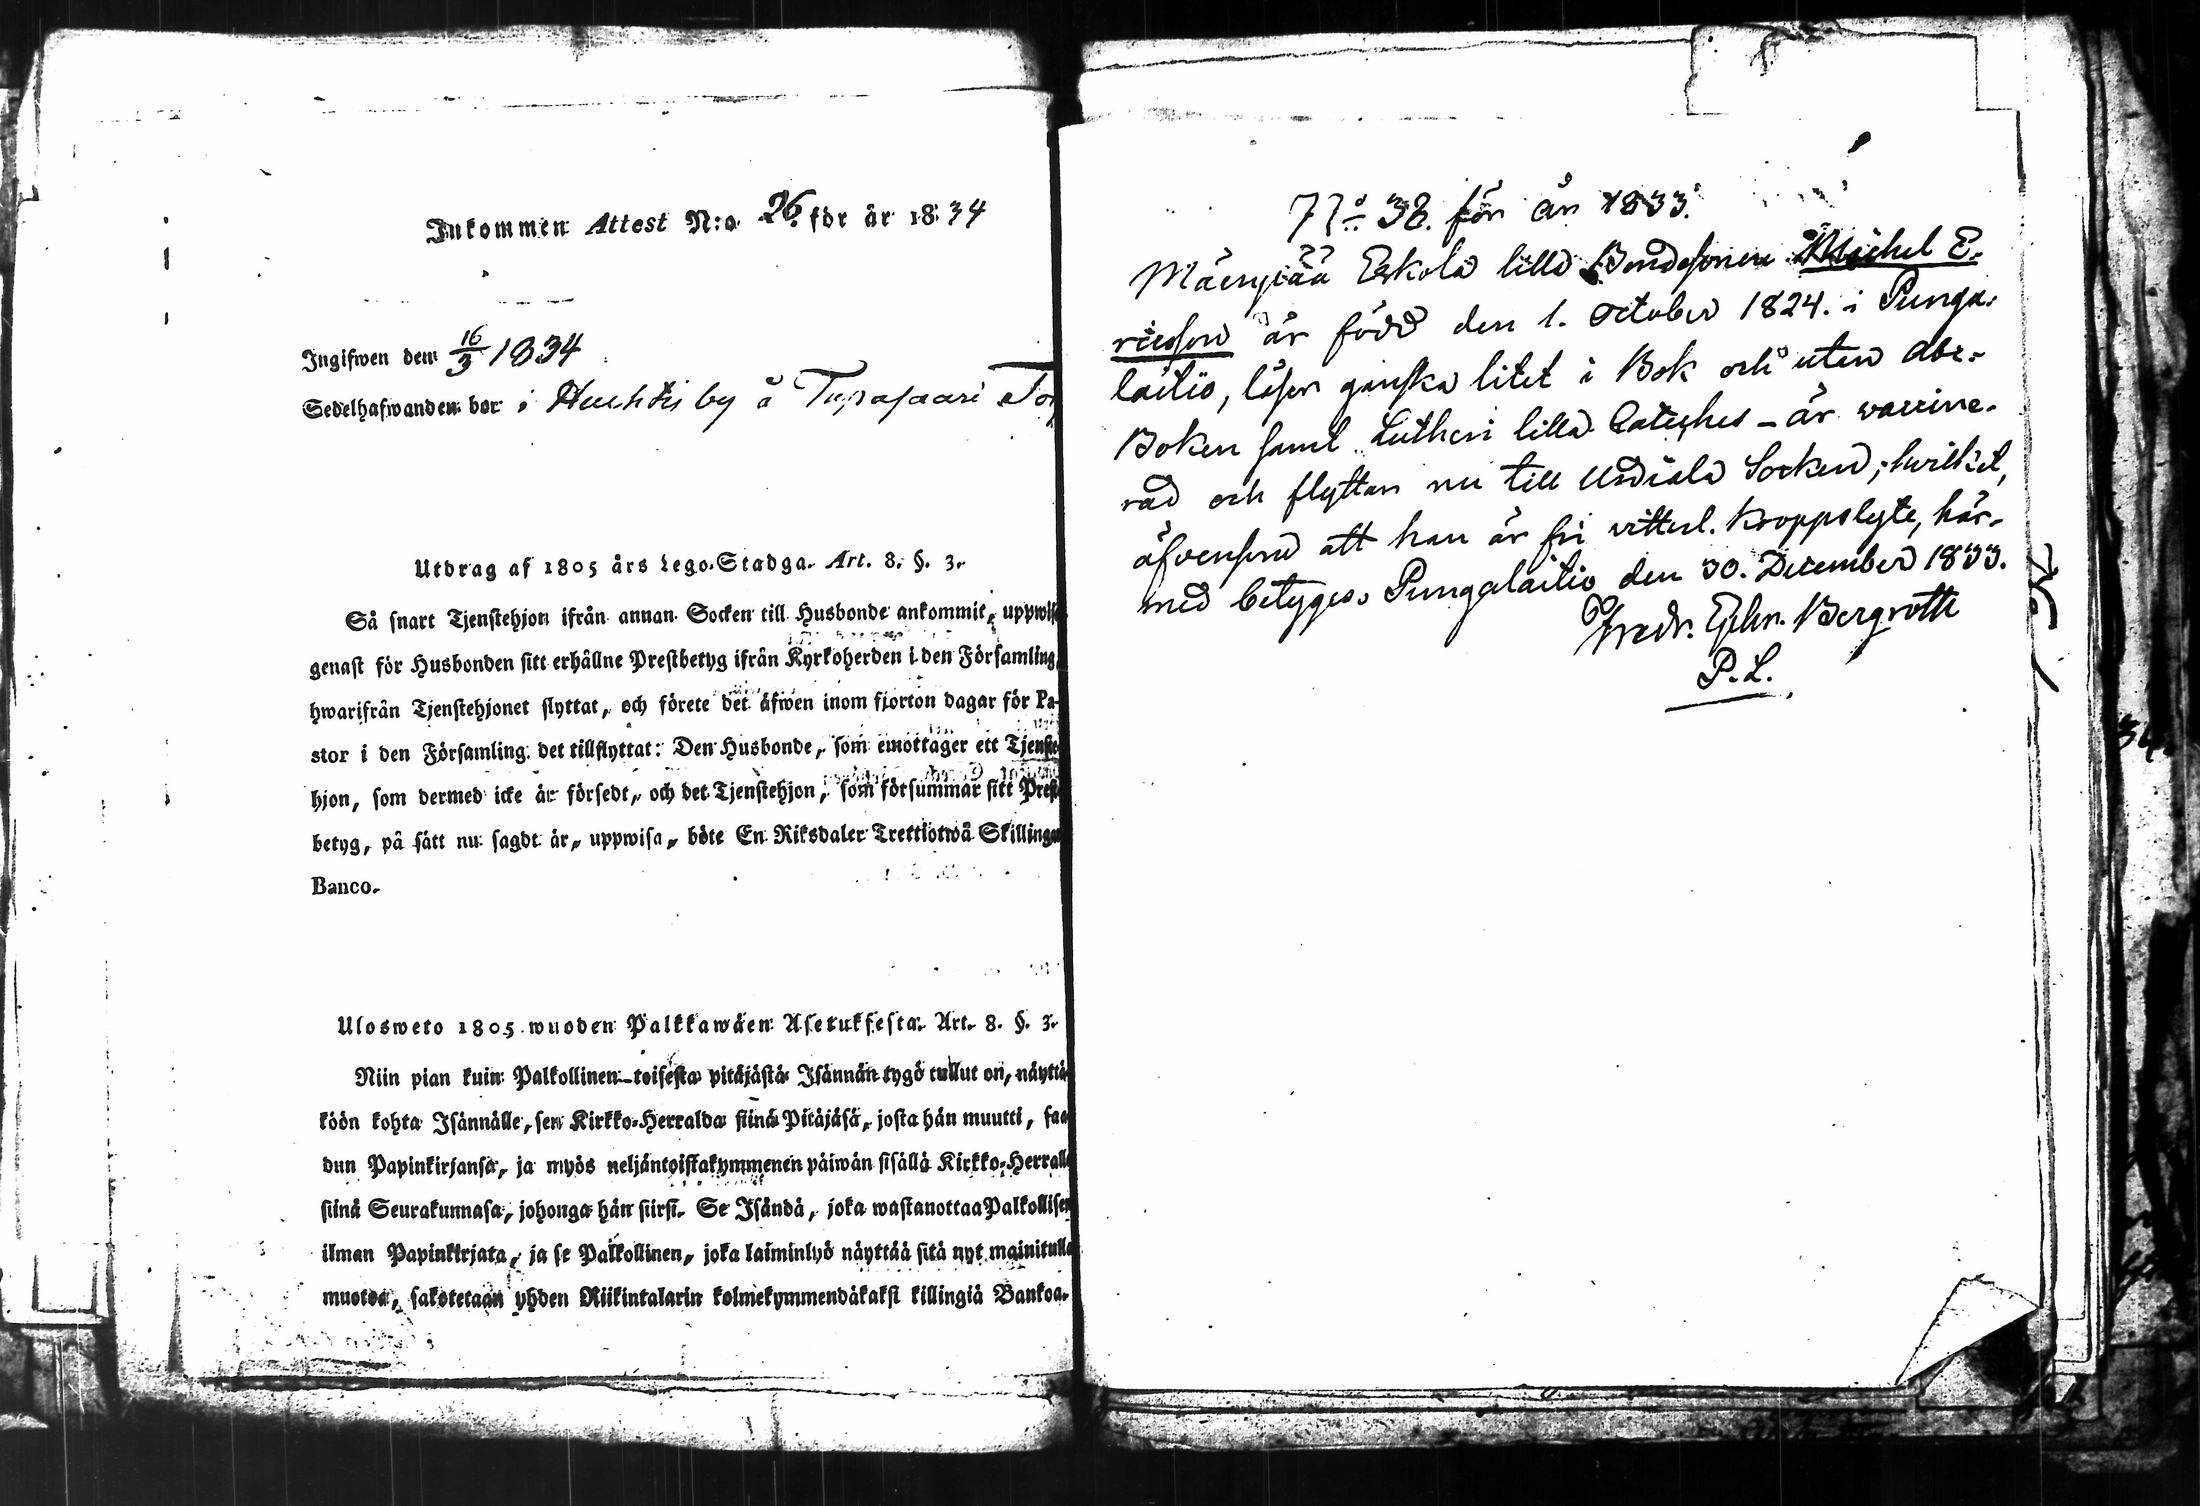 Inkommen Attest N:o 26 för år 1834
Ingifwen dem 16/3 1834
Sedelhafwanden bor i Huchtis by å Tupasaari Torp
Utdrag af 1805 års Lego-Stadga. Art. 8. §. 3.
Så snart Tjenstehjon ifrån annan Socken till Husbonde ankommit, uppwise
genast för Husbonden sitt erhållne Prestbetyg ifrån Kyrkoherden i den Församling,
hwarifrån Tjenstehjonet flyttat, och förete det äfwen inom fjorton dagar för Pa-
stor i den Församling det tillflyttat: Den Husbonde, som emottager ett Tjenste-
hjon, som dermed icke är försedt, och det Tjenstehjon, som försummar sitt Prest-
betyg, på sätt nu sagdt är, uppwisa, böte En Riksdaler Trettiotwå Skillingar
Banco.
Ulosweto 1805 wuoden Palkkawäen Asetuksesta. Art. 8. §. 3.
Niin pian kuin Palkollinen toisesta pitäjästä Isännän tygö tullut on, näyttä-
köön kohta Isännälle, sen Kirkko-Herralda siinä Pitäjäsä, josta hän muutti, saa-
dun Papinkirjansa, ja myös neljäntoistakymmenen päiwän sisällä Kirkko-Herralle
siinä Seurakunnasa, johonga hän siirsi. Se Isändä, joka wastanottaa Palkollisen
ilman Papinkirjata, ja se Palkollinen, joka laiminlyö näyttää sitä nyt mainitulla
muotoa, sakotetaan yhden Riikintalarin kolmekymmendäkaksi killingiä Bankoa.
No 38. för år 1833.
Mäenpää Eskola lilla Bondesonen Michel E-
ricsson är född den 1. October 1824. i Punga-
laitio, läser ganska litet i Bok och utan Abc-
Boken samt Lutheri lilla Cateches - är waccine-
rad och flyttar nu till Urdiala Socken; hwilket,
äfvensom att han är fri vitterl. kroppslyte, här-
med betygas. Pungalaitio den 30. December 1833.
Fredr. Ephr. Bergroth
P.L.